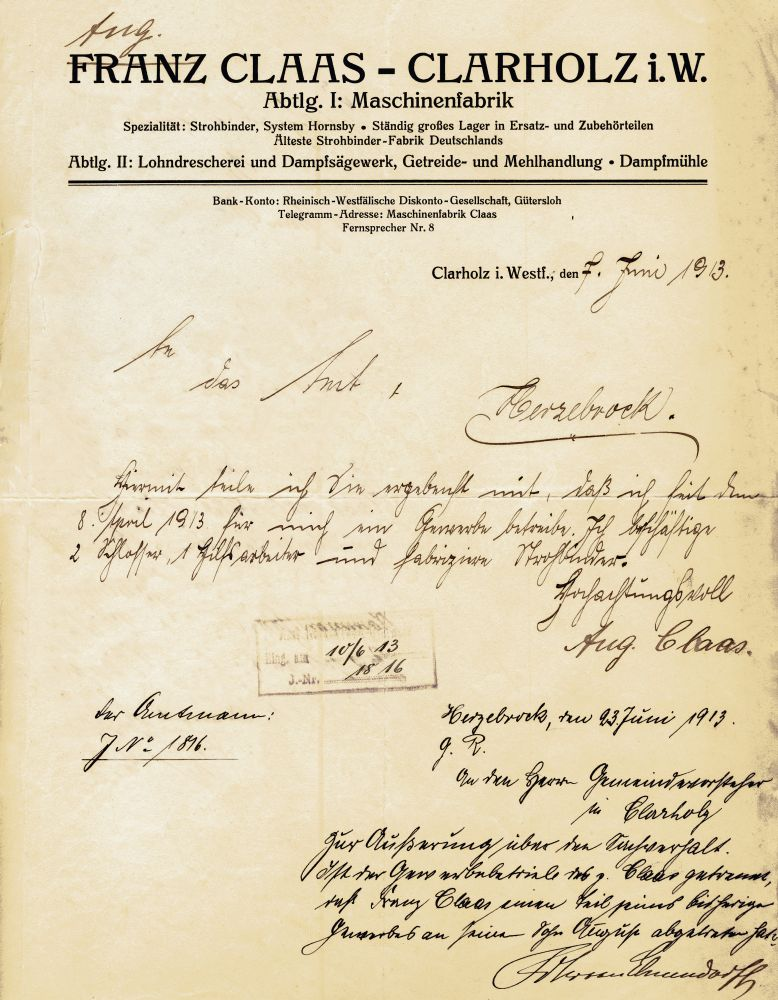 Aug.
FRANZ CLAAS - CLARHOLZ i.W.
Abtlg. I: Maschinenfabrik
Spezialität: Strohbinder, System Hornsby • Ständig großes Lager in Ersatz- und Zubehörteilen
Älteste Strohbinder-Fabrik Deutschlands
Abtlg. II: Lohndrescherei und Dampfsägewerk, Getreide- und Mehlhandlung • Dampfmühle
Bank-Konto: Rheinisch-Westfälische Diskonto-Gesellschaft, Gütersloh
Telegramm-Adresse: Maschinenfabrik Claas
Fernsprecher Nr. 8
Clarholz i. Westf., den 7. Juni 1913.
An
das Amt,
Herzebrock.
Hiermit teile ich Sie ergebenst mit, daß ich seit dem
8. April 1913 für mich ein Gewerbe betreibe. Ich beschäftige
2 Schlosser, 1 Hilfsarbeiter und fabriziere Strohbinder.
Hochachtungsvoll
Aug. Claas.
Eing. am 10/6 13
J.-Nr. 1816
Der Amtmann:
J No 1816.
Herzebrock, den 23. Juni 1913.
g. R.
An den Herrn Gemeindevorsteher
in Clarholz
Zur Äußerung über den Sachverhalt.
Ist der Gewerbebetrieb des p. Claas getrennt,
daß Franz Claas einen Teil seines bisherigen
Gewerbes an seinen Sohn August abgetreten hat.